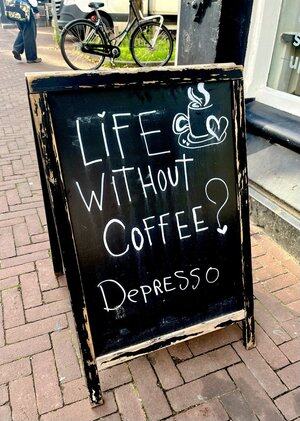 LiFE
WiTHOUT
COFFEE?
DePRESSO